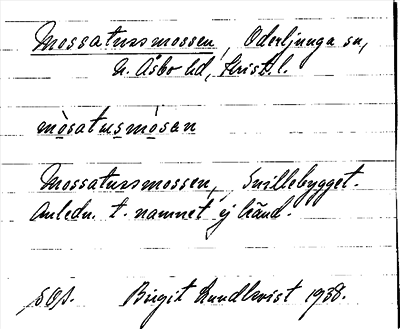 Mossatussmossen, Oderljunga sn,
N. Åsbo hd, Krist. l.
mòsatusmósan
Mossatussmossen, Snillebygget.
Anledn. t. namnet ej känd.
Birgit Lundkvist 1938.